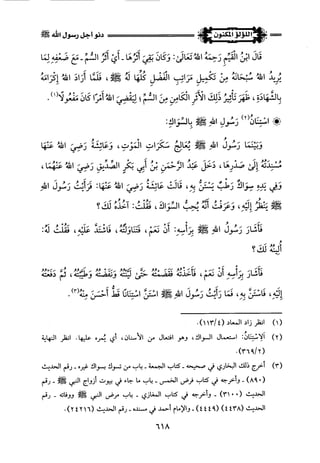 اللؤلؤ المكنون
دنو أجل رسول الله ﷺ
قَالَ ابْنُ القَيِّمِ رَحِمَهُ اللهُ تَعَالَى: وَكَانَ بَقِيَ أَثَرُهَا ـ أَيْ أَثَرُ السُّمِّ ـ مَعَ ضَعْفِهِ لِمَا
يُرِيدُ اللهُ سُبْحَانَهُ مِنْ تَكْمِيلِ مَرَاتِبِ الْفَضْلِ كُلِّهَا لَهُ ﷺ، فَلَمَّا أَرَادَ اللهُ إِكْرَامَهُ
بِالشَّهَادَةِ، ظَهَرَ تَأْثِيرُ ذَلِكَ الْأَثَرِ الْكَامِنِ مِنَ السُّمِّ؛ لِيَقْضِيَ اللهُ أَمْرًا كَانَ مَفْعُولًا(١).
◉ اسْتِنَانُ(٢) رَسُولِ اللهِ ﷺ بِالسِّوَاكِ:
وَبَيْنَمَا رَسُولُ اللهِ ﷺ يُعَالِجُ سَكَرَاتِ الْمَوْتِ، وَعَائِشَةُ رَضِيَ اللهُ عَنْهَا
مُسْنِدَتُهُ إِلَى صَدْرِهَا، دَخَلَ عَبْدُ الرَّحْمَنِ بْنُ أَبِي بَكْرٍ الصِّدِّيقِ رَضِيَ اللهُ عَنْهُمَا،
وَفِي يَدِهِ سِوَاكٌ رَطْبٌ يَسْتَنُّ بِهِ، قَالَتْ عَائِشَةُ رَضِيَ اللهُ عَنْهَا: فَرَأَيْتُ رَسُولَ اللهِ
ﷺ يَنْظُرُ إِلَيْهِ، وَعَرَفْتُ أَنَّهُ يُحِبُّ السِّوَاكَ، فَقُلْتُ: آخُذُهُ لَكَ؟
فَأَشَارَ رَسُولُ اللهِ ﷺ بِرَأْسِهِ: أَنْ نَعَمْ، فَتَنَاوَلْتُهُ، فَاشْتَدَّ عَلَيْهِ، فَقُلْتُ لَهُ:
أُلَيِّنُهُ لَكَ؟
فَأَشَارَ بِرَأْسِهِ أَنْ نَعَمْ، فَأَخَذْتُهُ فَقَضَمْتُهُ حَتَّى لَيَّنْتُهُ وَنَفَضْتُهُ وَطَيَّبْتُهُ، ثُمَّ دَفَعْتُهُ
إِلَيْهِ، فَاسْتَنَّ بِهِ، فَمَا رَأَيْتُ رَسُولَ اللهِ ﷺ اسْتَنَّ اسْتِنَانًا قَطُّ أَحْسَنَ مِنْهُ(٣).
(١) انظر زاد المعاد (١١٣/٤).
(٢) الِاسْتِنَانُ: استعمال السواك، وهو افتعال من الأسنان، أي يُمره عليها. انظر النهاية
(٣٦٩/٢).
(٣) أخرج ذلك البخاري في صحيحه ـ كتاب الجمعة ـ باب من تسوك بسواك غيره ـ رقم الحديث
(٨٩٠) ـ وأخرجه في كتاب فرض الخمس ـ باب ما جاء في بيوت أزواج النبي ﷺ ـ رقم
الحديث (٣١٠٠) ـ وأخرجه في كتاب المغازي ـ باب مرض النبي ﷺ ووفاته ـ رقم
الحديث (٤٤٣٨) (٤٤٤٩) ـ والإمام أحمد في مسنده ـ رقم الحديث (٢٤٢١٦).
٦١٨